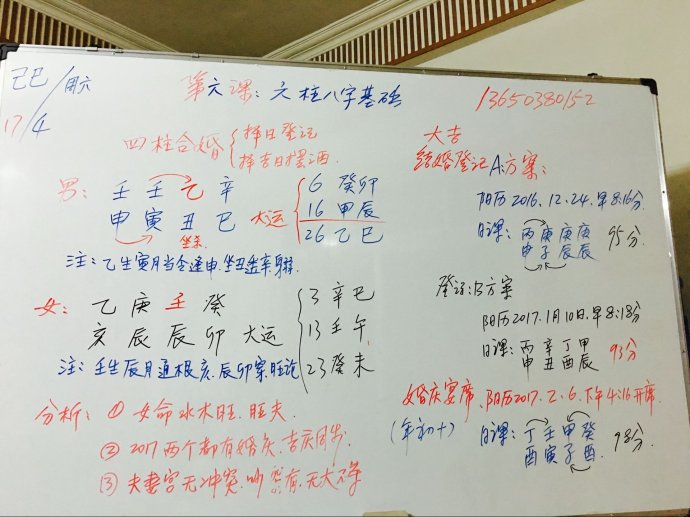 己巳/周六
17/4
第六课：六柱八字基础
13650380152
四柱合婚
择日登记
择吉日摆酒.
男：壬 壬 乙 辛
申 寅 丑 巳 大运
坐杀
6 癸卯
16 甲辰
26 乙巳
注：乙生寅月当令逢申.坐丑
女：乙 庚 壬 癸
亥 辰 辰 卯 大运
3 辛巳
13 壬午
23 癸未
注：壬生辰月通根亥.辰卯
旺论
分析：① 女命水木旺.旺夫
② 2017两个都有婚庆.吉庆同步.
③ 夫妻宫无冲突.吵
有.无大
大吉
结婚登记A方案：
阳历2016.12.24.早8:16分.
日课：丙 庚 庚 庚
申 子 辰 辰
95分.
登记：B方案
阳历2017.1月10日.早8:18分
日课：丙 辛 丁 甲
申 丑 酉 辰
93分
婚庆宴席.阳历2017.2.6.下午4:16开席.
(年初十)
日课：丁 壬 甲 癸
酉 寅 子 酉
98分.